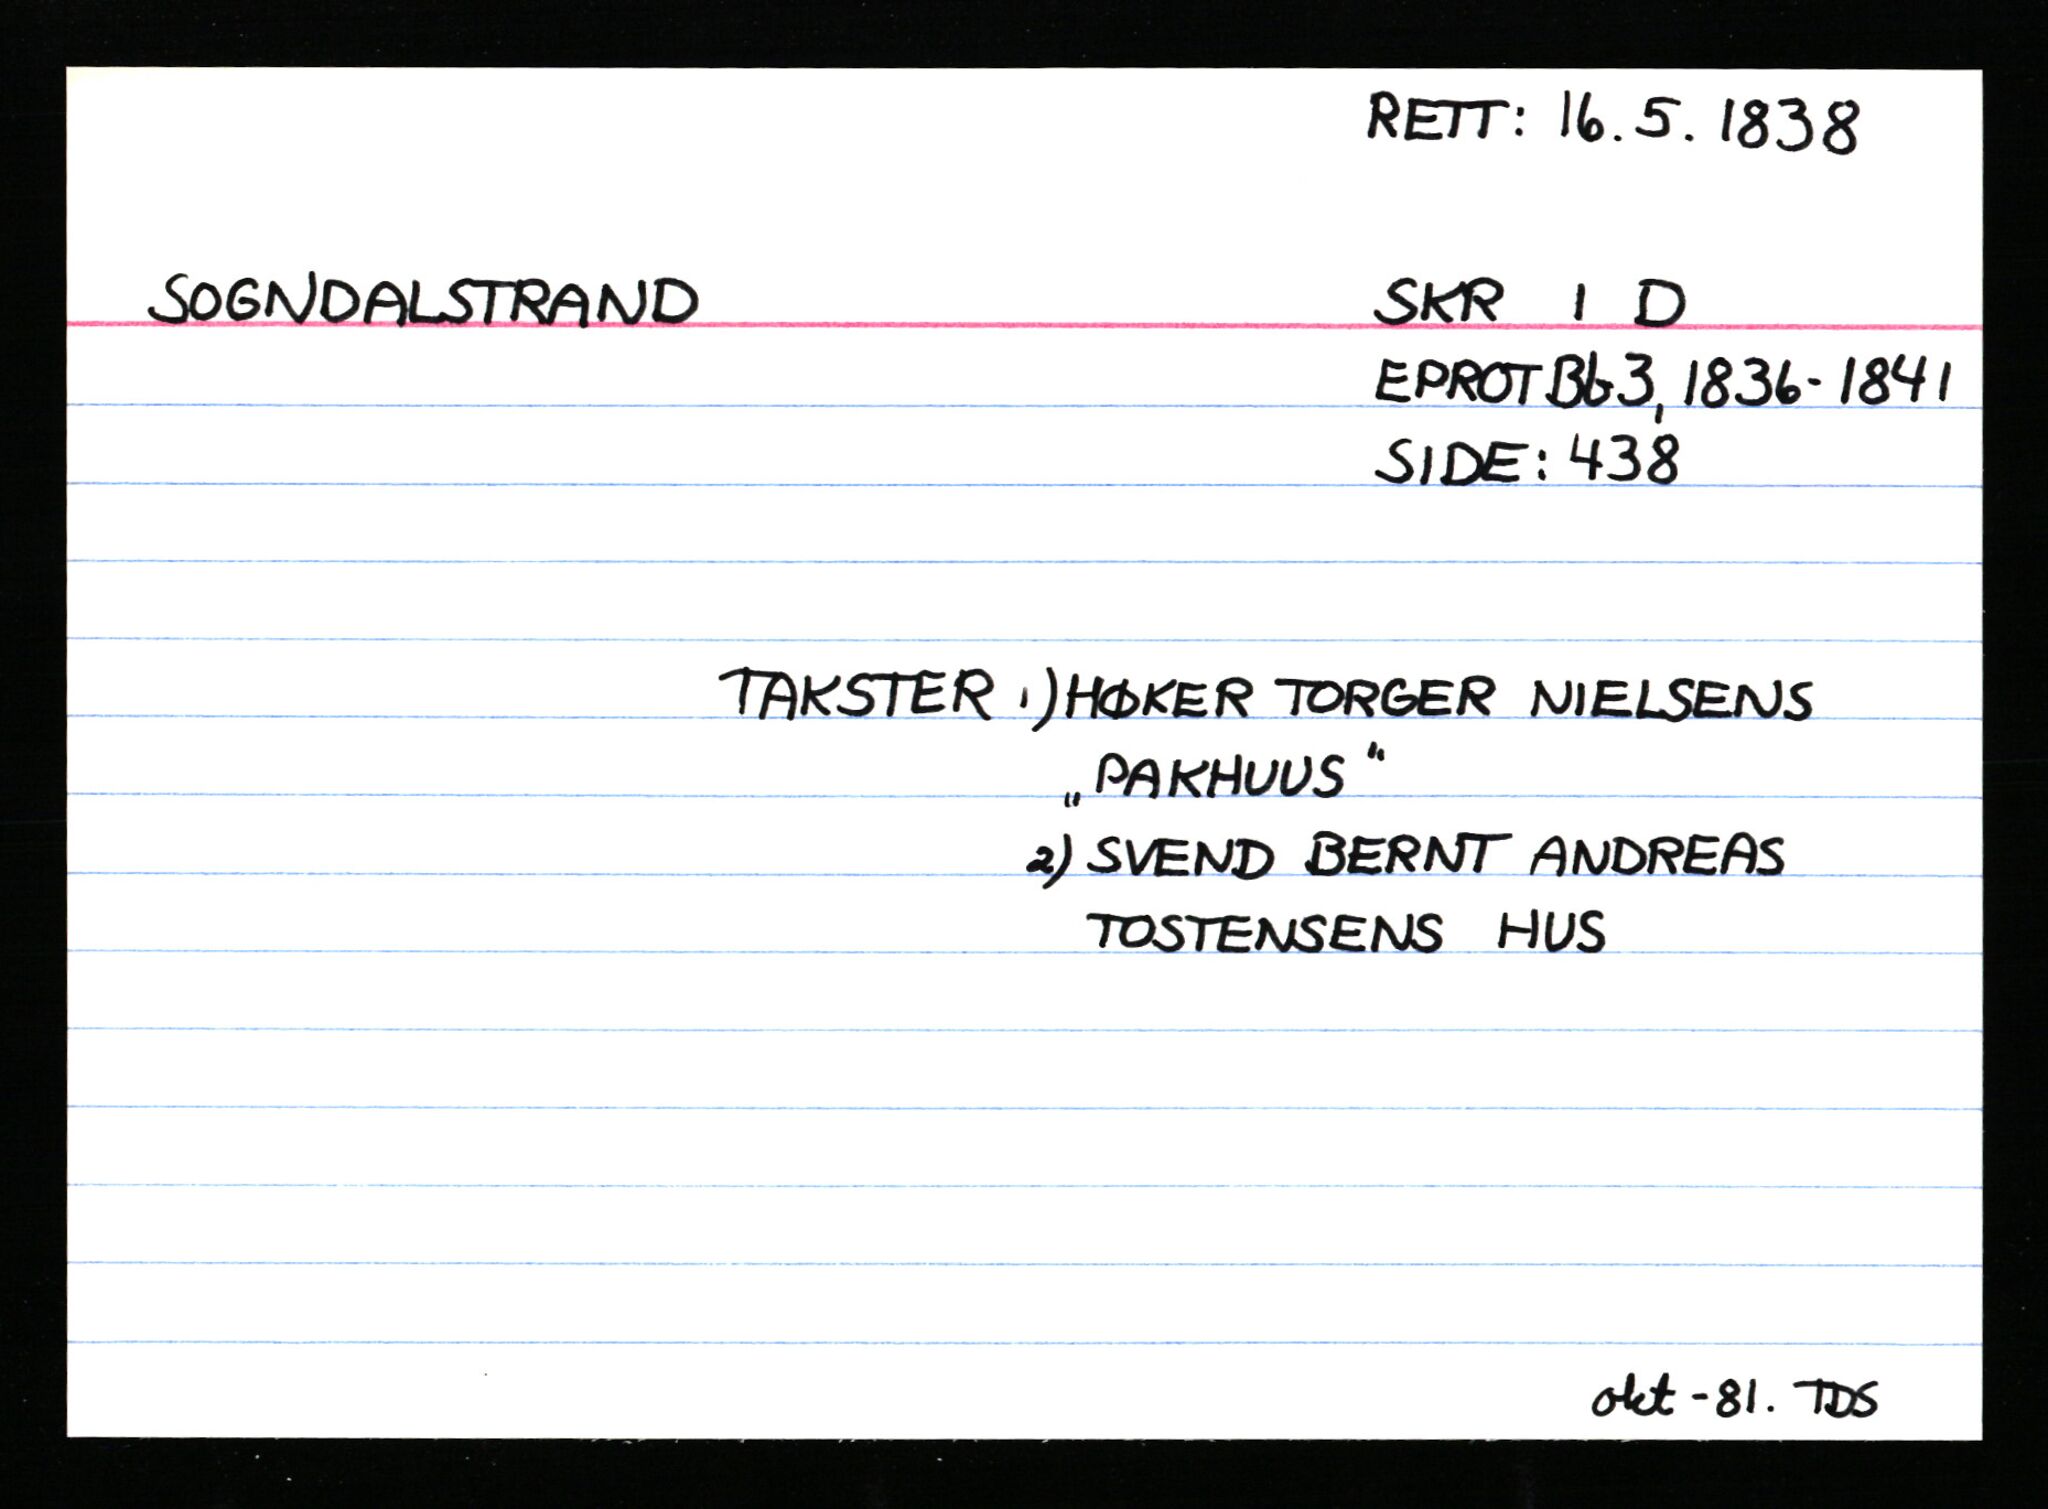 RETT: 16.5.1838
SOGNDALSTRAND SKR 1 D
EPROT Bb3, 1836-1841
SIDE: 438
TAKSTER 1) HØKER TORGER NIELSENS
„PAKHUUS“
2) SVEND BERNT ANDREAS
TOSTENSENS HUS
okt - 81. TDS